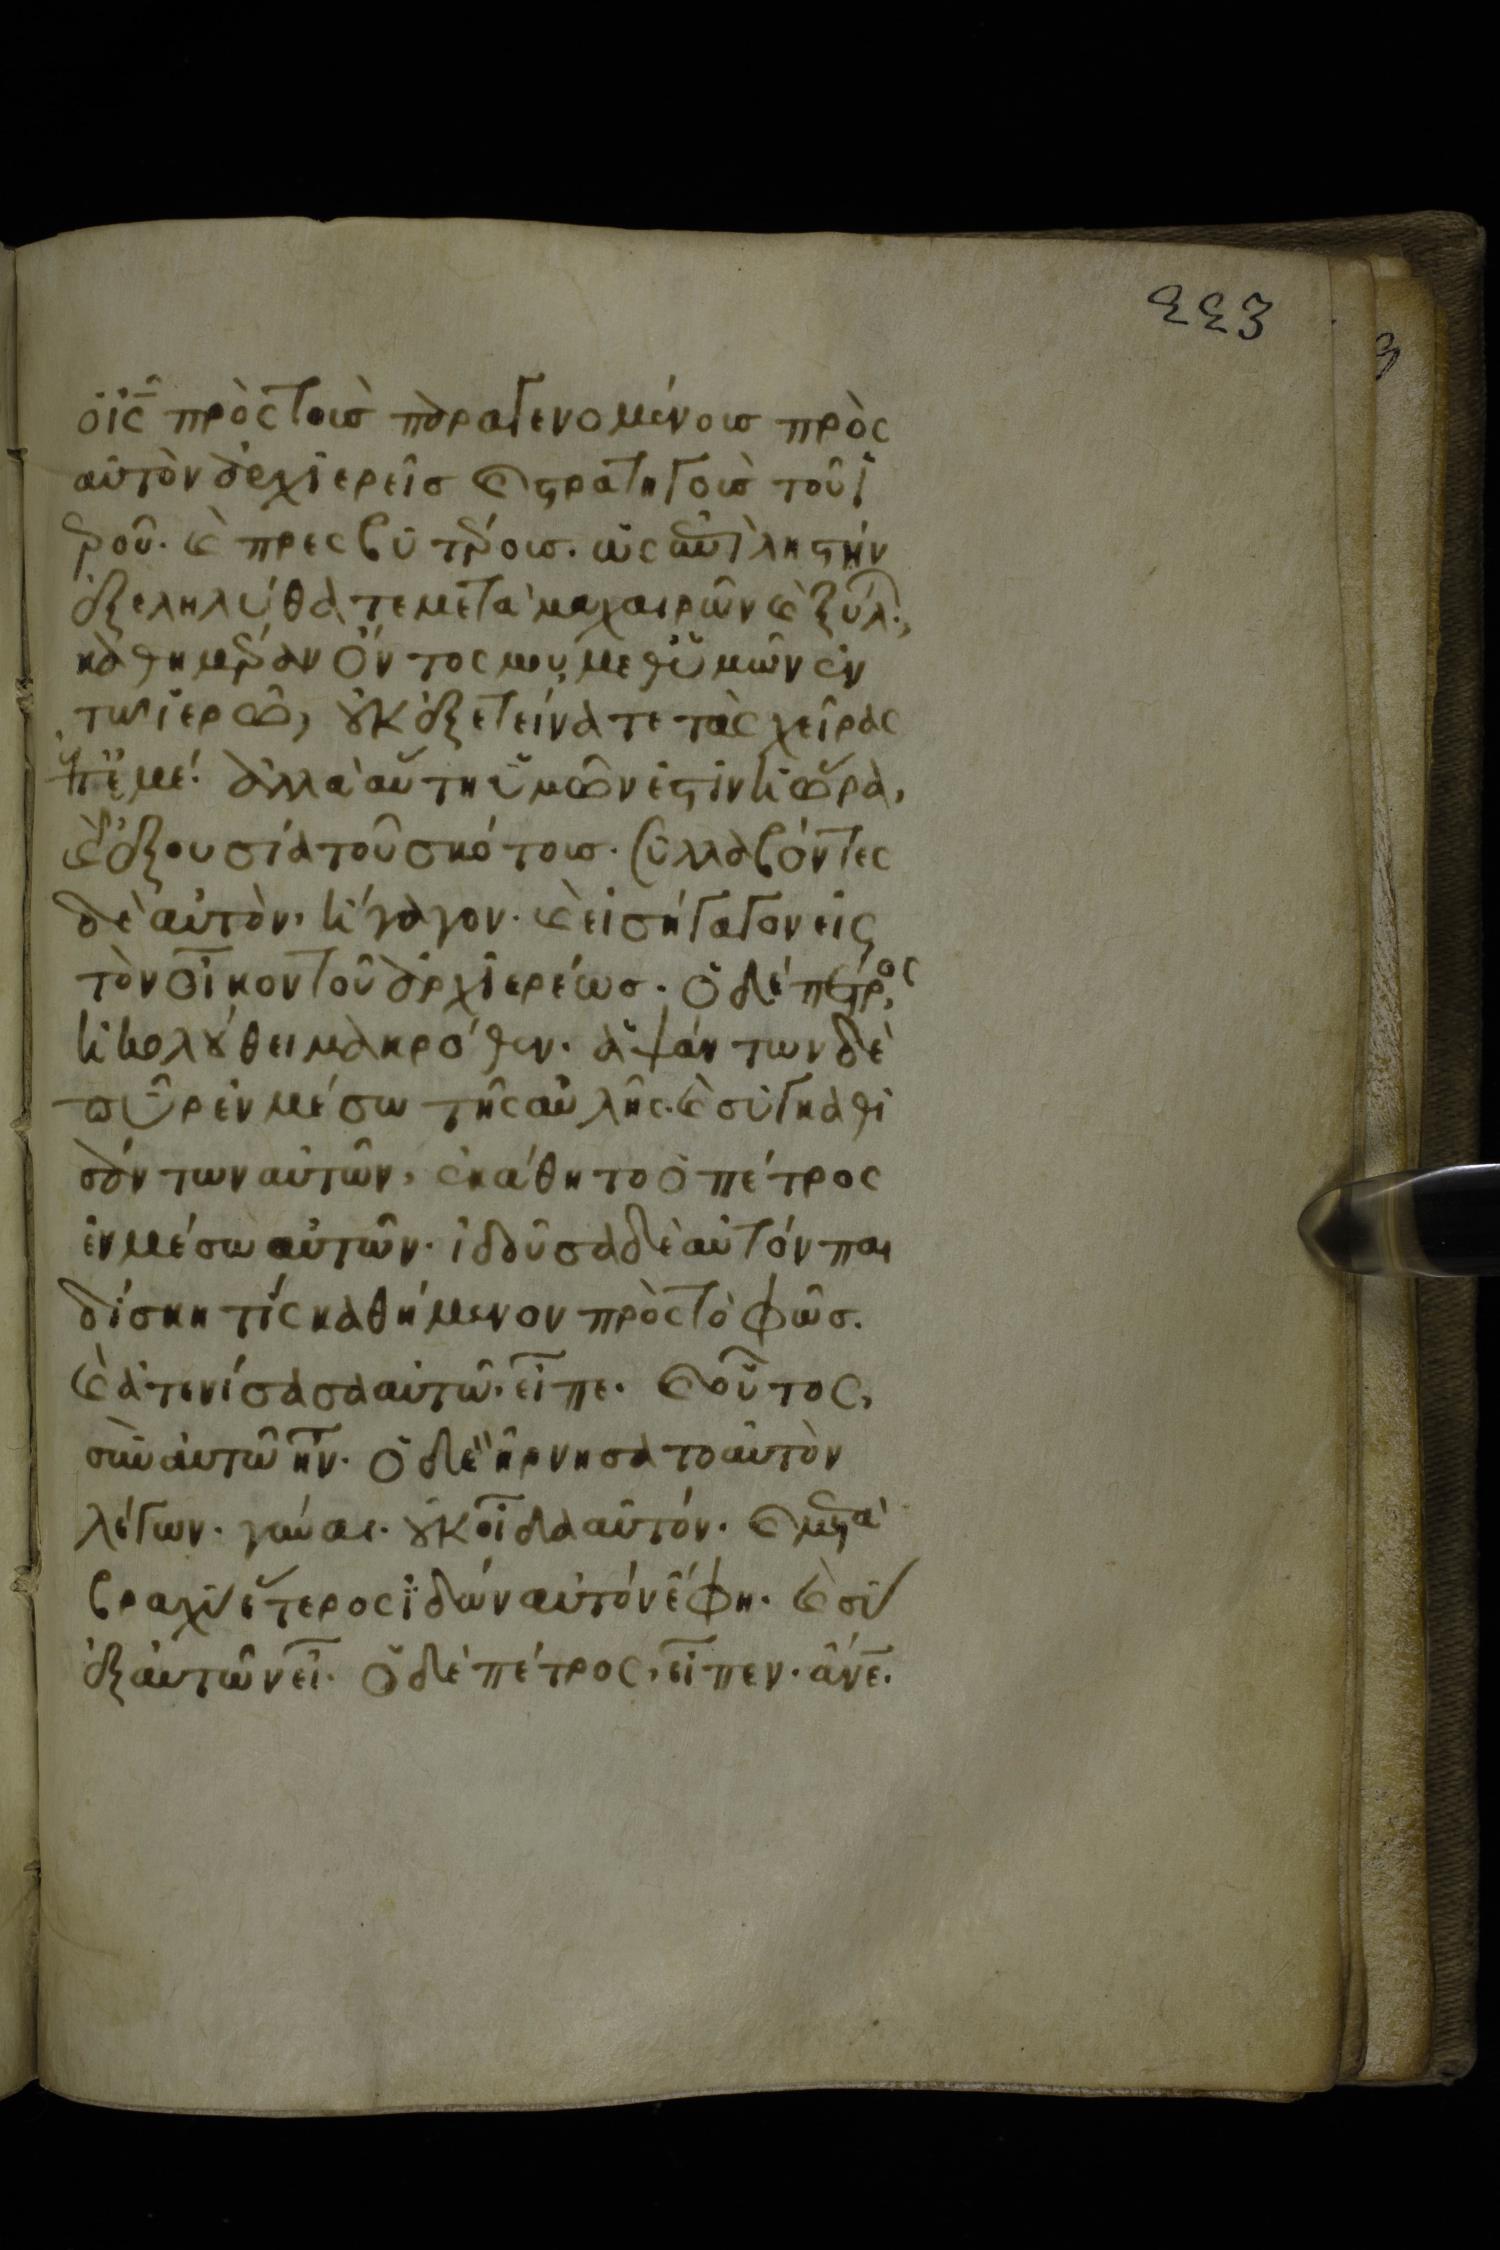 223
ὁ ις̅ πρὸς τοὺς παραγενομένους πρὸς
αὐτὸν ἀρχιερεῖς κ στρατηγοὺς τοῦ ϊ
εροῦ. κ πρεσβυτέρους. ὡς ἐπὶ ληστὴν
ἐξεληλύθατε μετὰ μαχαιρῶν κ ξύλ.,
καθημέραν ὄντος μου μεθ ὑμῶν ἐν
τῶ ϊερῶ, οὐκ ἐξετείνατε τὰς χεῖρας
ἐπ ἐμέ. ἀλλὰ αὕτη ὑμῶν ἐστὶν ἡ ὥρα,
κ ἡ ἐξουσία τοῦ σκότους. συλλαβόντες
δὲ αὐτὸν, ἤγαγον. κ εἰσήγαγον εἰς
τὸν οἶκον τοῦ ἀρχιερέως. ὁ δὲ πέτρος
ἠκολούθει μακρόθεν. ἁψάντων δὲ
πῦρ ἐν μέσω τῆς αὐλῆς. κ συγκαθι
σάντων αὐτῶν, ἐκάθητο ὁ πέτρος
ἐν μέσω αὐτῶν. ἰδοῦσα δὲ αὐτόν παι
δίσκη τίς καθήμενον πρὸς τὸ φῶς.
κ ἀτενίσασα αὐτῶ. εἶπε. κ οὗτος,
σὺν αὐτῶ ἦν. ὁ δὲ ἠρνήσατο αὐτὸν
λέγων. γύναι. οὐκ οἶδα αὐτόν. κ μετὰ
βραχὺ ἕτερος ϊδών αὐτόν ἔφη. κ σὺ
ἐξ αὐτῶν εἶ. ὁ δὲ πέτρος, εἶπεν. ἀνε̅.